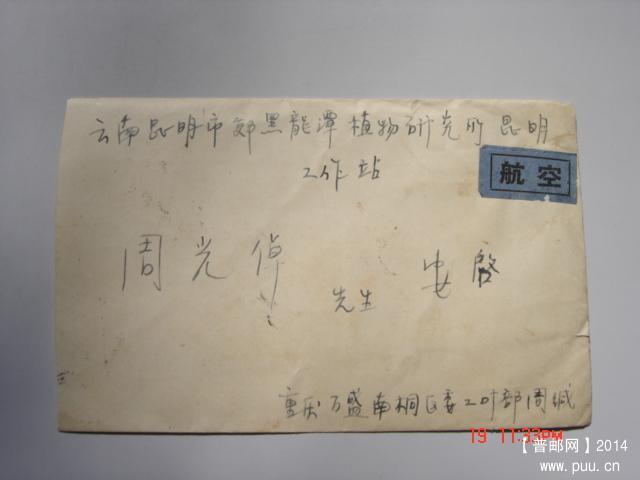 云南昆明市郊黑龍潭植物研究所昆明
航空
工作站
周光倬
先生
安啓
重庆万盛南桐区委工叶部周缄
19 11:33PM
【普邮网】2014
www.puu.cn